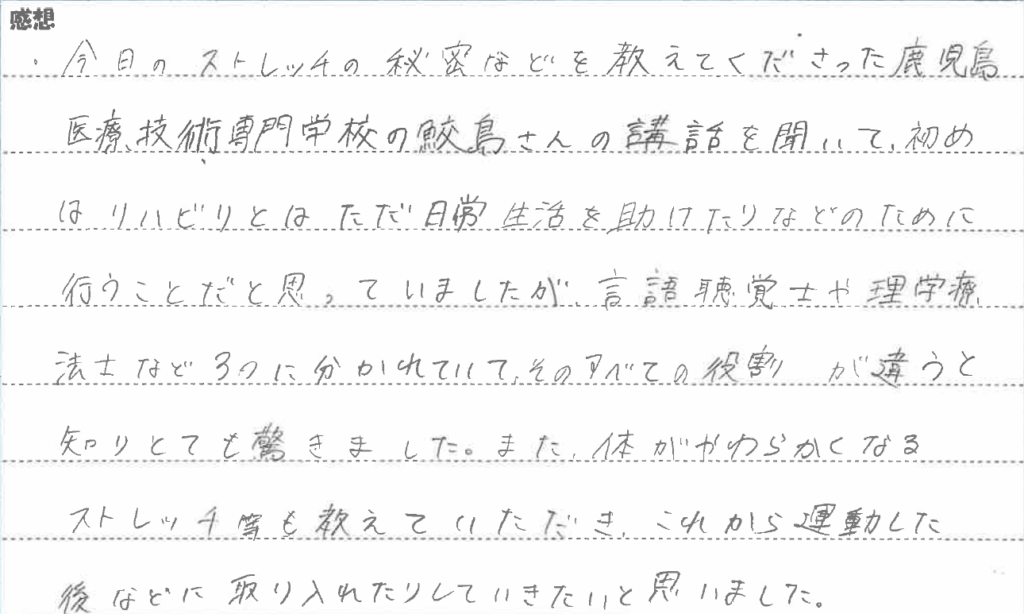 感想
・今日のストレッチの秘密などを教えてくださった鹿児島
医療技術専門学校の鮫島さんの講話を聞いて、初め
はリハビリとはただ日常生活を助けたりなどのために
行うことだと思っていましたが、言語聴覚士や理学療
法士など3つに分かれていて、そのすべての役割が違うと
知りとても驚きました。また、体がやわらかくなる
ストレッチ等も教えていただき、これから運動した
後などに取り入れたりしていきたいと思いました。